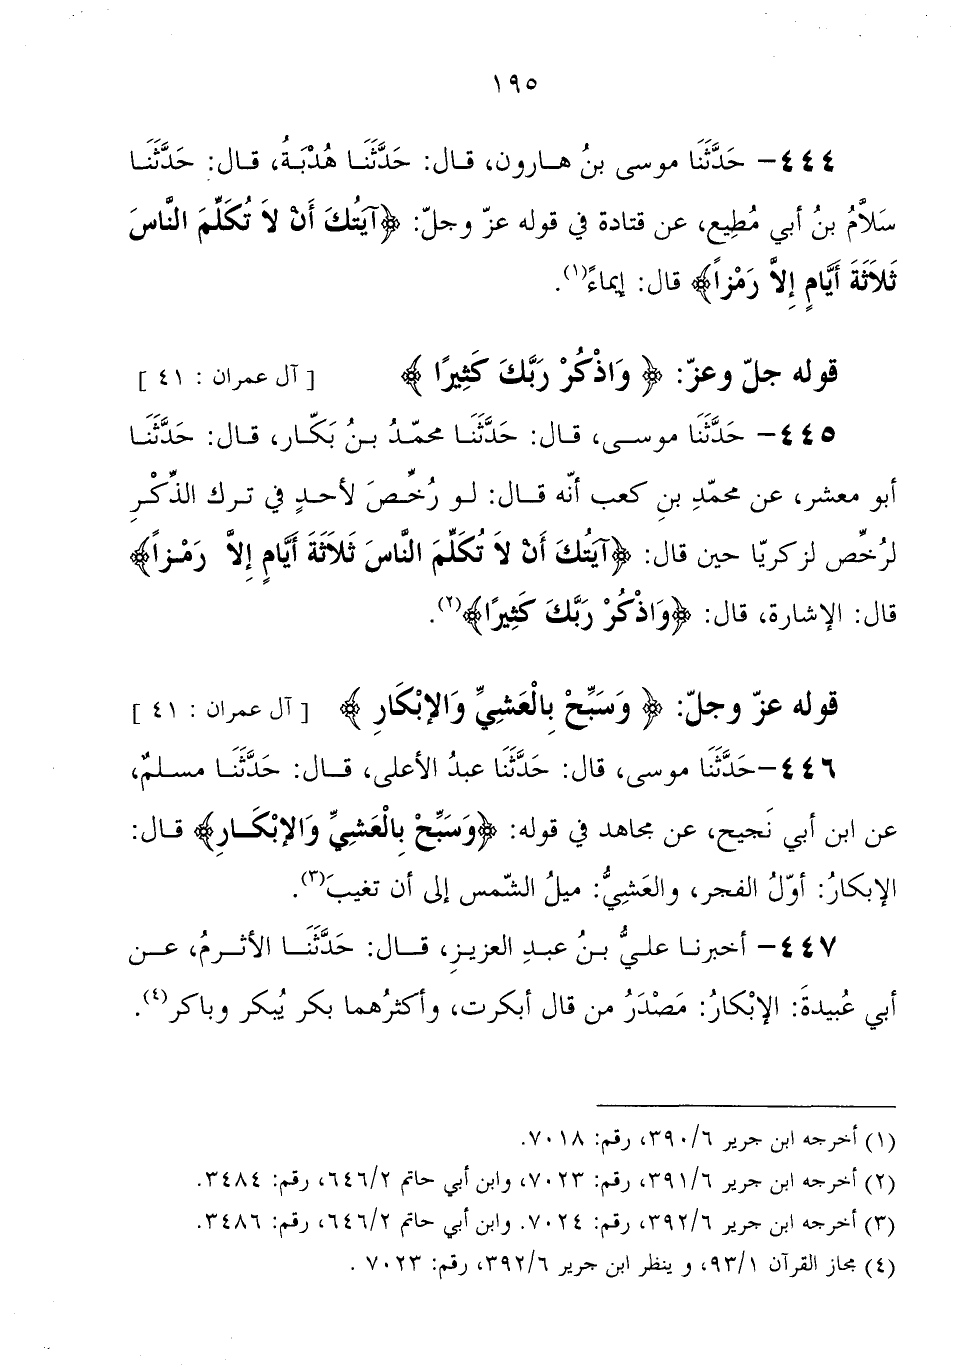 ١٩٥
٤٤٤- حَدَّثَنَا موسى بنُ هـارون، قـال: حَدَّثَنَـا هُدْبَـةُ، قـال: حَدَّثَنَـا
سَلاَّمُ بنُ أبي مُطِيع، عن قتادة في قوله عزّ وجلّ: ﴿آيَتُكَ أَنْ لاَ تُكَلِّمَ النَّاسَ
ثَلاَثَةَ أَيَّامٍ إِلاَّ رَمْزاً﴾ قال: إيماءً(١).
قوله جلّ وعزّ: ﴿ وَاذْكُرْ رَبَّكَ كَثِيرًا ﴾ [ آل عمران : ٤١ ]
٤٤٥- حَدَّثَنَا موســى، قـال: حَدَّثَنَـا محمّـدُ بـنُ بَكّـار، قـال: حَدَّثَنَـا
أبو معشر، عن محمّدِ بنِ كعب أنّه قــال: لـو رُخِّـصَ لأحـدٍ في تـرك الذِّكْـرِ
لرُخِّص لزكريّا حين قال: ﴿آيَتُكَ أَنْ لاَ تُكَلِّمَ النَّاسَ ثَلاَثَةَ أَيَّامٍ إِلاَّ رَمْـزاً﴾
قال: الإشارة، قال: ﴿وَاذْكُرْ رَبَّكَ كَثِيرًا﴾(٢).
قوله عزّ وجلّ: ﴿ وَسَبِّحْ بِالْعَشِيِّ وَالإِبْكَارِ ﴾ [ آل عمران : ٤١ ]
٤٤٦-حَدَّثَنَا موسى، قال: حَدَّثَنَا عبدُ الأعلى، قــال: حَدَّثَنَـا مسـلمٌ،
عن ابن أبي نَجيح، عن مجاهد في قوله: ﴿وَسَبِّحْ بِالْعَشِيِّ وَالإِبْكَــارِ﴾ قـال:
الإبكارُ: أوّلُ الفجر، والعَشِيُّ: ميلُ الشّمس إلى أن تغيبَ(٣).
٤٤٧- أخبرنـا علـيُّ بـنُ عبـدِ العزيـزِ، قــال: حَدَّثَنَــا الأثـرمُ، عــن
أبي عُبيدةَ: الإبْكارُ: مَصْدَرُ من قال أبكرت، وأكثرُهما بكر يُبكر وباكر(٤).
(١) أخرجه ابن جرير ٣٩٠/٦، رقم: ٧٠١٨.
(٢) أخرجه ابن جرير ٣٩١/٦، رقم: ٧٠٢٣، وابن أبي حاتم ٦٤٦/٢، رقم: ٣٤٨٤.
(٣) أخرجه ابن جرير ٣٩٢/٦، رقم: ٧٠٢٤. وابن أبي حاتم ٦٤٦/٢، رقم: ٣٤٨٦.
(٤) مجاز القرآن ٩٣/١، و ينظر ابن جرير ٣٩٢/٦، رقم: ٧٠٢٣ .